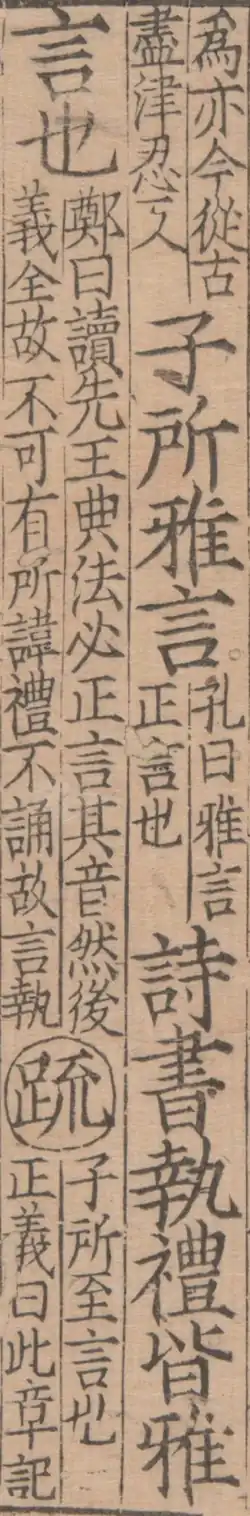 為亦今從古
盡津忍人
子所雅言
孔曰雅言
正言也
詩書執禮皆雅
言也
鄭曰讀先王典法必正言其音然後
義全故不可有所諱禮不誦故言執
疏
子所至言也
正義曰此章記